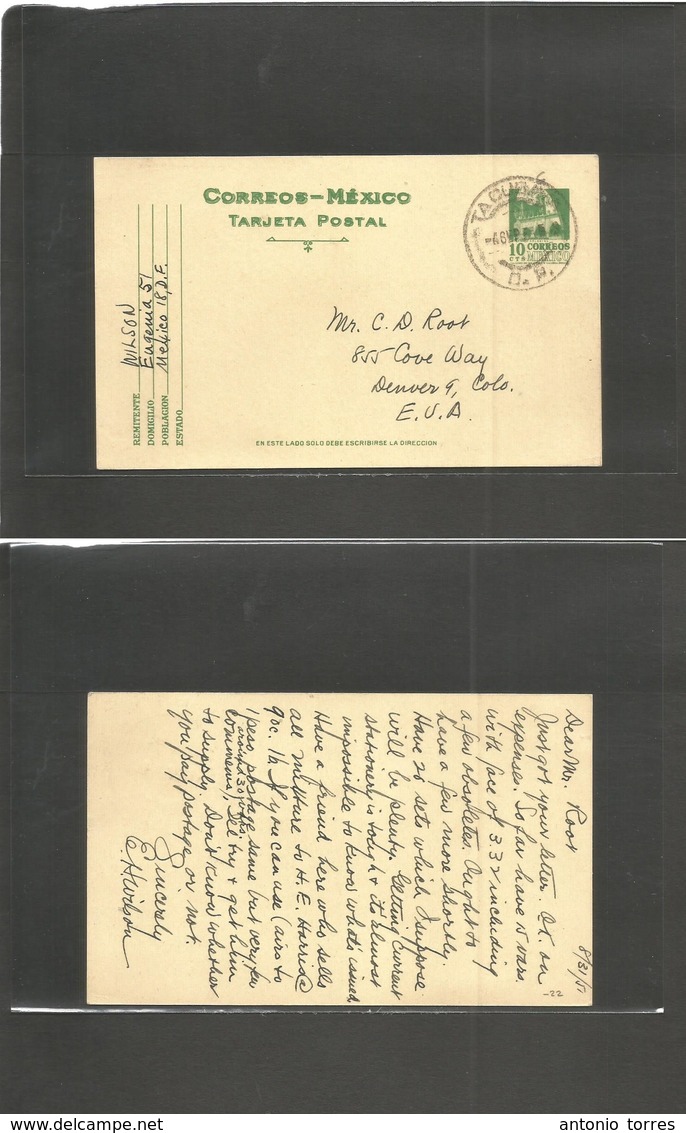 CORREOS-MÉXICO
TARJETA POSTAL
TACUBAYA
D. F.
10 CORREOS
CTS MEXICO
REMITENTE WILSON
DOMICILIO Eugenia 51
POBLACION Mexico 18, D.F.
ESTADO
Mr. C. D. Root
855 Cove Way
Denver 9, Colo.
E.U.A.
EN ESTE LADO SOLO DEBE ESCRIBIRSE LA DIRECCION
8/31/51
Dear Mr. Root
Just got your letter. O.K. on
expense. So far have 15 vars.
with face of 3.32 including
a few obsoletes. Ought to
have a few more shortly.
Have 20 sets which I suppose
will be plenty. Getting current
stationery is tough & it's almost
impossible to know what's issued
Have a friend here who sells
all mixture to H. E. Harris @
90c. lb. If you can use (airs to
1 peso, postage same but very few
commems, around 30 vars.) I'll try & get him
to supply. Don't know whether
you pay postage or not.
Sincerely
E. H. Wilson
-22
antonio torres